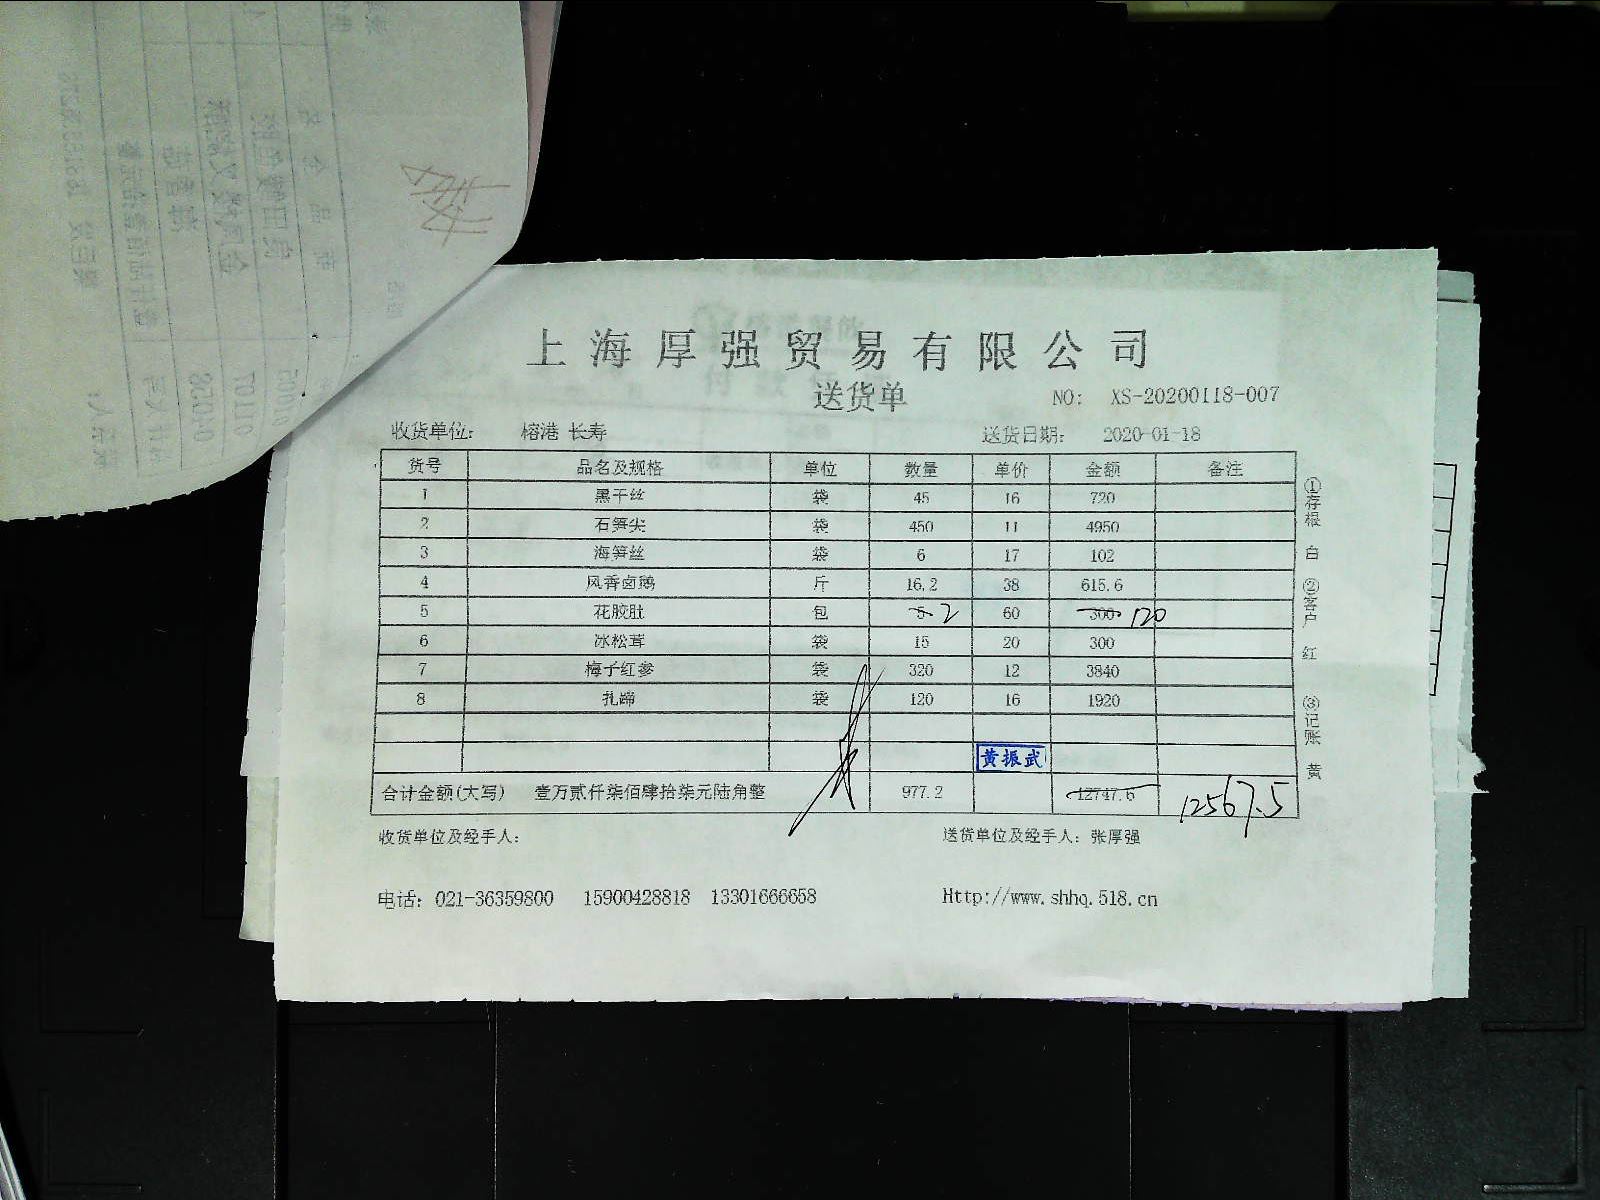 上海厚强贸易有限公司
送货单
NO: XS-20200118-007
收货单位: 榕港 长寿 送货日期: 2020-01-18
货号 品名及规格 单位 数量 单价 金额 备注
1 黑干丝 袋 45 16 720
2 石笋尖 袋 450 11 4950
3 海笋丝 袋 6 17 102
4 风香卤鹅 斤 16.2 38 615.6
5 花胶肚 包 5 2 60 300 120
6 冰松茸 袋 15 20 300
7 梅子红参 袋 320 12 3840
8 扎蹄 袋 120 16 1920
黄振武
合计金额(大写) 壹万贰仟柒佰肆拾柒元陆角整 977.2 12747.6 12567.5
收货单位及经手人: 送货单位及经手人: 张厚强
电话: 021-36359800 15900428818 13301666658 Http://www.shhq.518.cn
①存根 白 ②客户 红 ③记账 黄